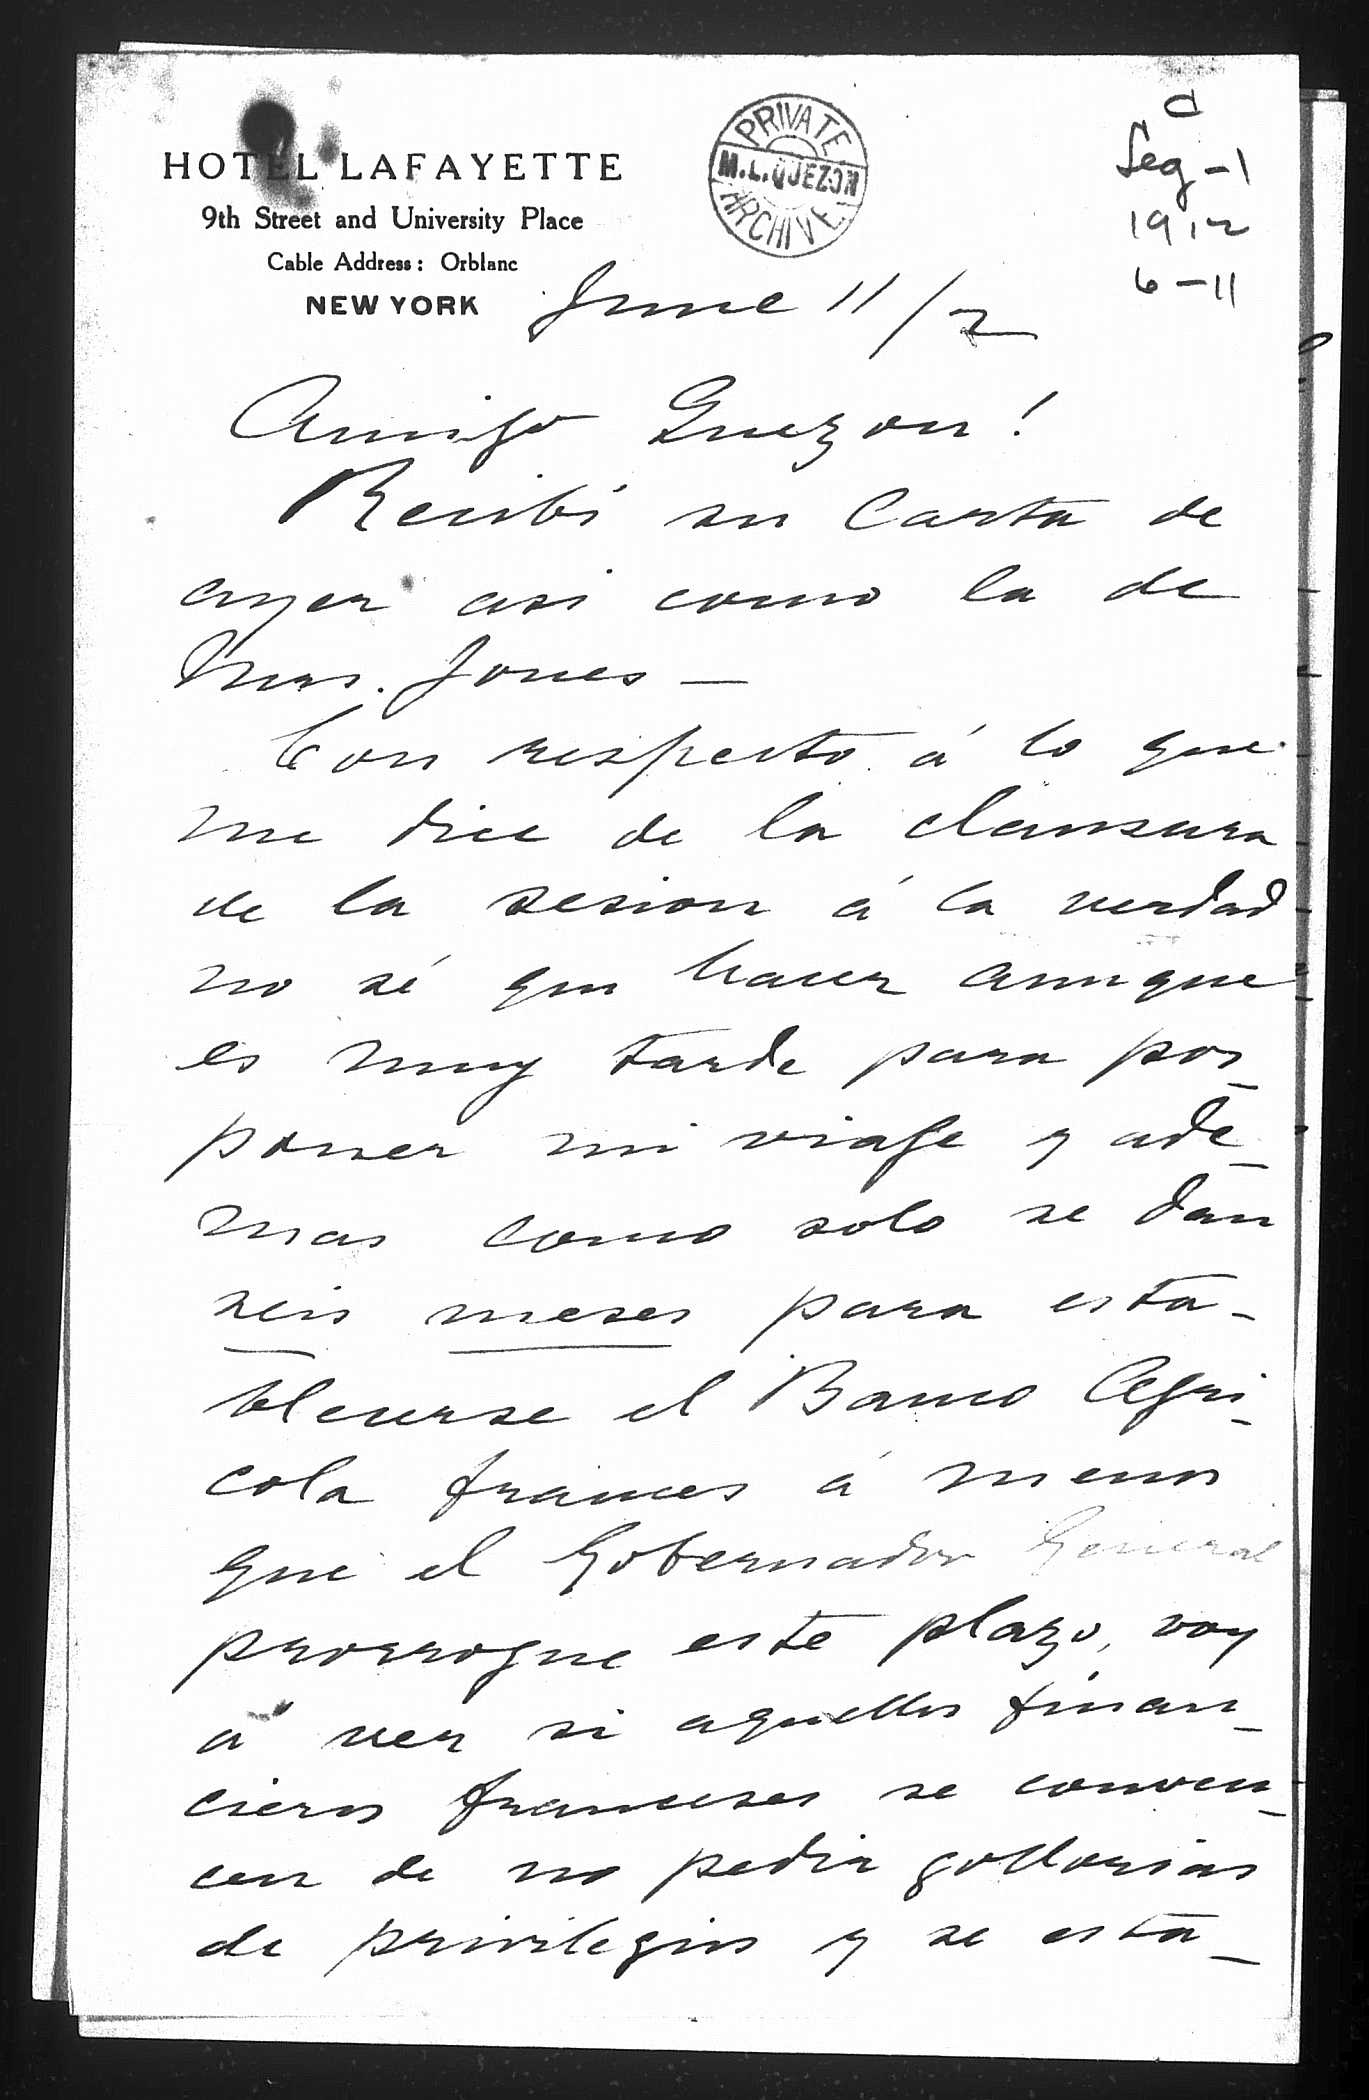 HOTEL LAFAYETTE
9th Street and University Place
Cable Address: Orblanc
NEW YORK
PRIVATE
M.L. QUEZON
ARCHIVE
C
Seg-1
1912
6-11
June 11/2
Amigo Quezon!
Recibí su carta de
ayer asi como la de
Mrs. Jones —
Con respecto á lo que
me dice de la clausura
de la sesion á la verdad
no sé que hacer aunque
es muy tarde para pos_
poner mi viaje y ade_
mas como solo se dan
seis meses para esta-
blecerse el Banco Agri_
cola frances á menos
que el Gobernador General
prorrogue este plazo, voy
á ver si aquellos finan_
cieros franceses se conven_
cen de no pedir gollorias
de privilegios y se esta_